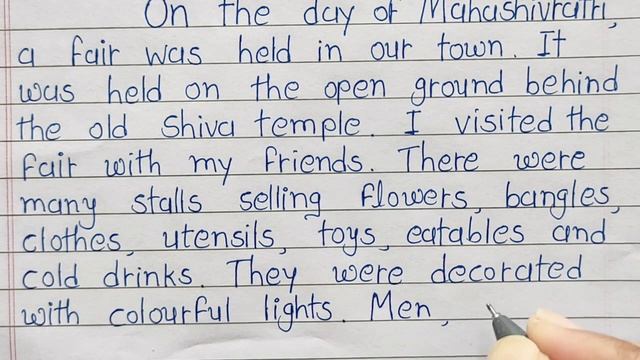 On the day of Mahashivratri,
a fair was held in our town. It
was held on the open ground behind
the old Shiva temple. I visited the
fair with my friends. There were
many stalls selling flowers, bangles,
clothes, utensils, toys, eatables and
cold drinks. They were decorated
with colourful lights. Men,